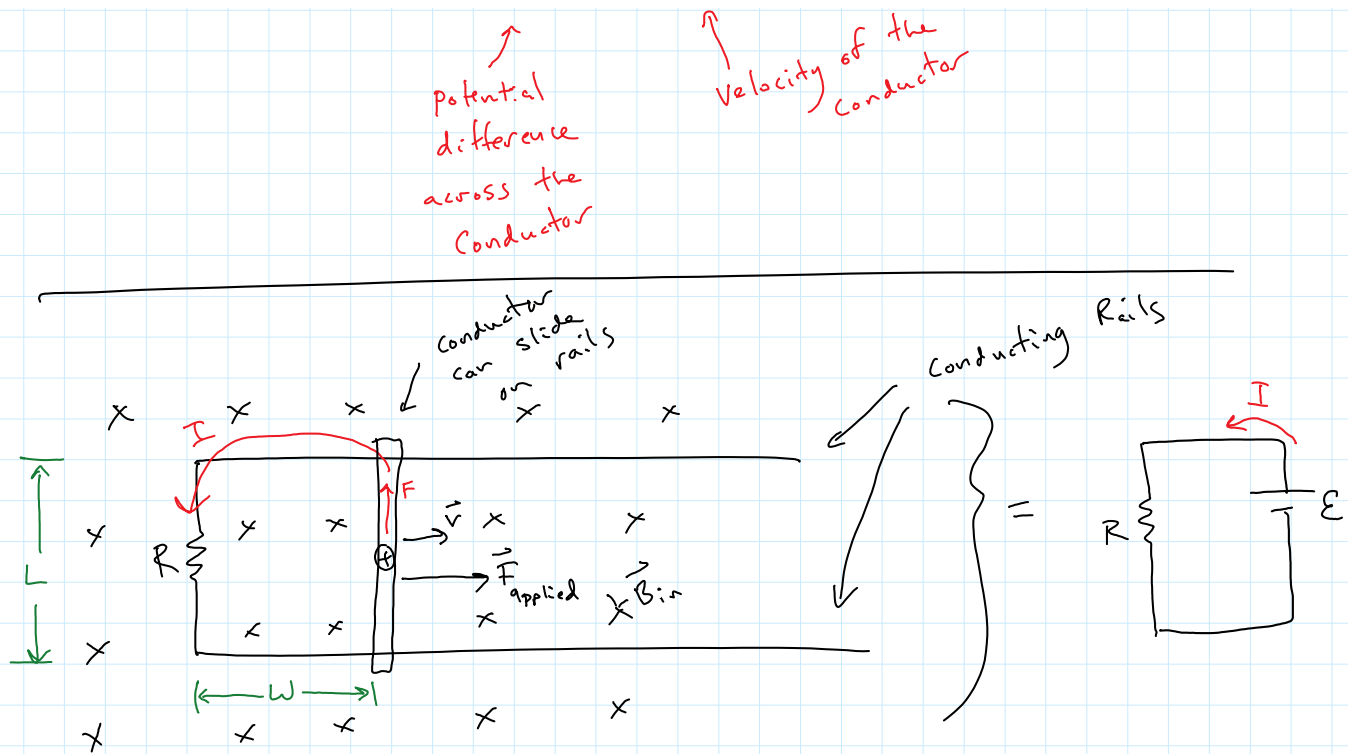 potential
difference
across the
Conductor
Velocity of the
conductor
conductor
can slide
on rails
Conducting Rails
x x x x x
I
F
v⃗
x x x x x
R
+
F⃗ applied
B⃗ in
L
x x x x
x
W
x x x x x
=
I
R
ℰ